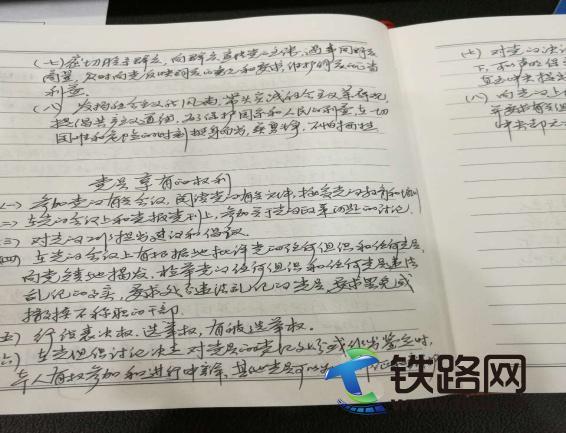 (七) 密切联系群众,向群众宣传党的主张,遇事同群众
商量,及时向党反映群众的意见和要求,维护群众的正当
利益。
(八) 发扬社会主义新风尚,带头实践社会主义荣辱观,
提倡共产主义道德,为了保护国家和人民的利益,在一切
困难和危险的时刻挺身而出,英勇斗争,不怕牺牲
党员享有的权利
(一) 参加党的有关会议,阅读党的有关文件,接受党的教育和培训
(二) 在党的会议上和党报党刊上,参加关于党的政策问题的讨论.
(三) 对党的工作提出建议和倡议.
(四) 在党的会议上有根据地批评党的任何组织和任何党员,
向党负责地揭发、检举党的任何组织和任何党员违法
乱纪的事实,要求处分违法乱纪的党员,要求罢免或
撤换不称职的干部.
(五) 行使表决权.选举权,有被选举权.
(六) 在党组织讨论决定对党员的党纪处分或作出鉴定时,
本人有权参加和进行申辩,其他党员可以
(七) 对党的决议
下,
(八) 向党的上
铁路网